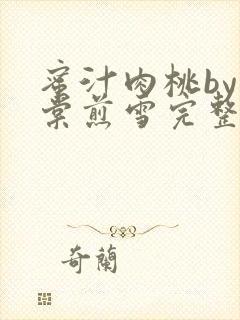 蜜汁肉桃by
棠煎雪完整
奇蘭